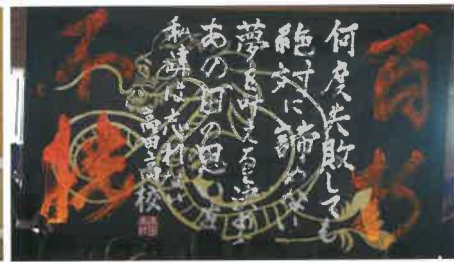 百折
何度失敗しても
絶対に諦めない
夢を叶える
あの日の思い
私達は忘れない
高田高校
不撓